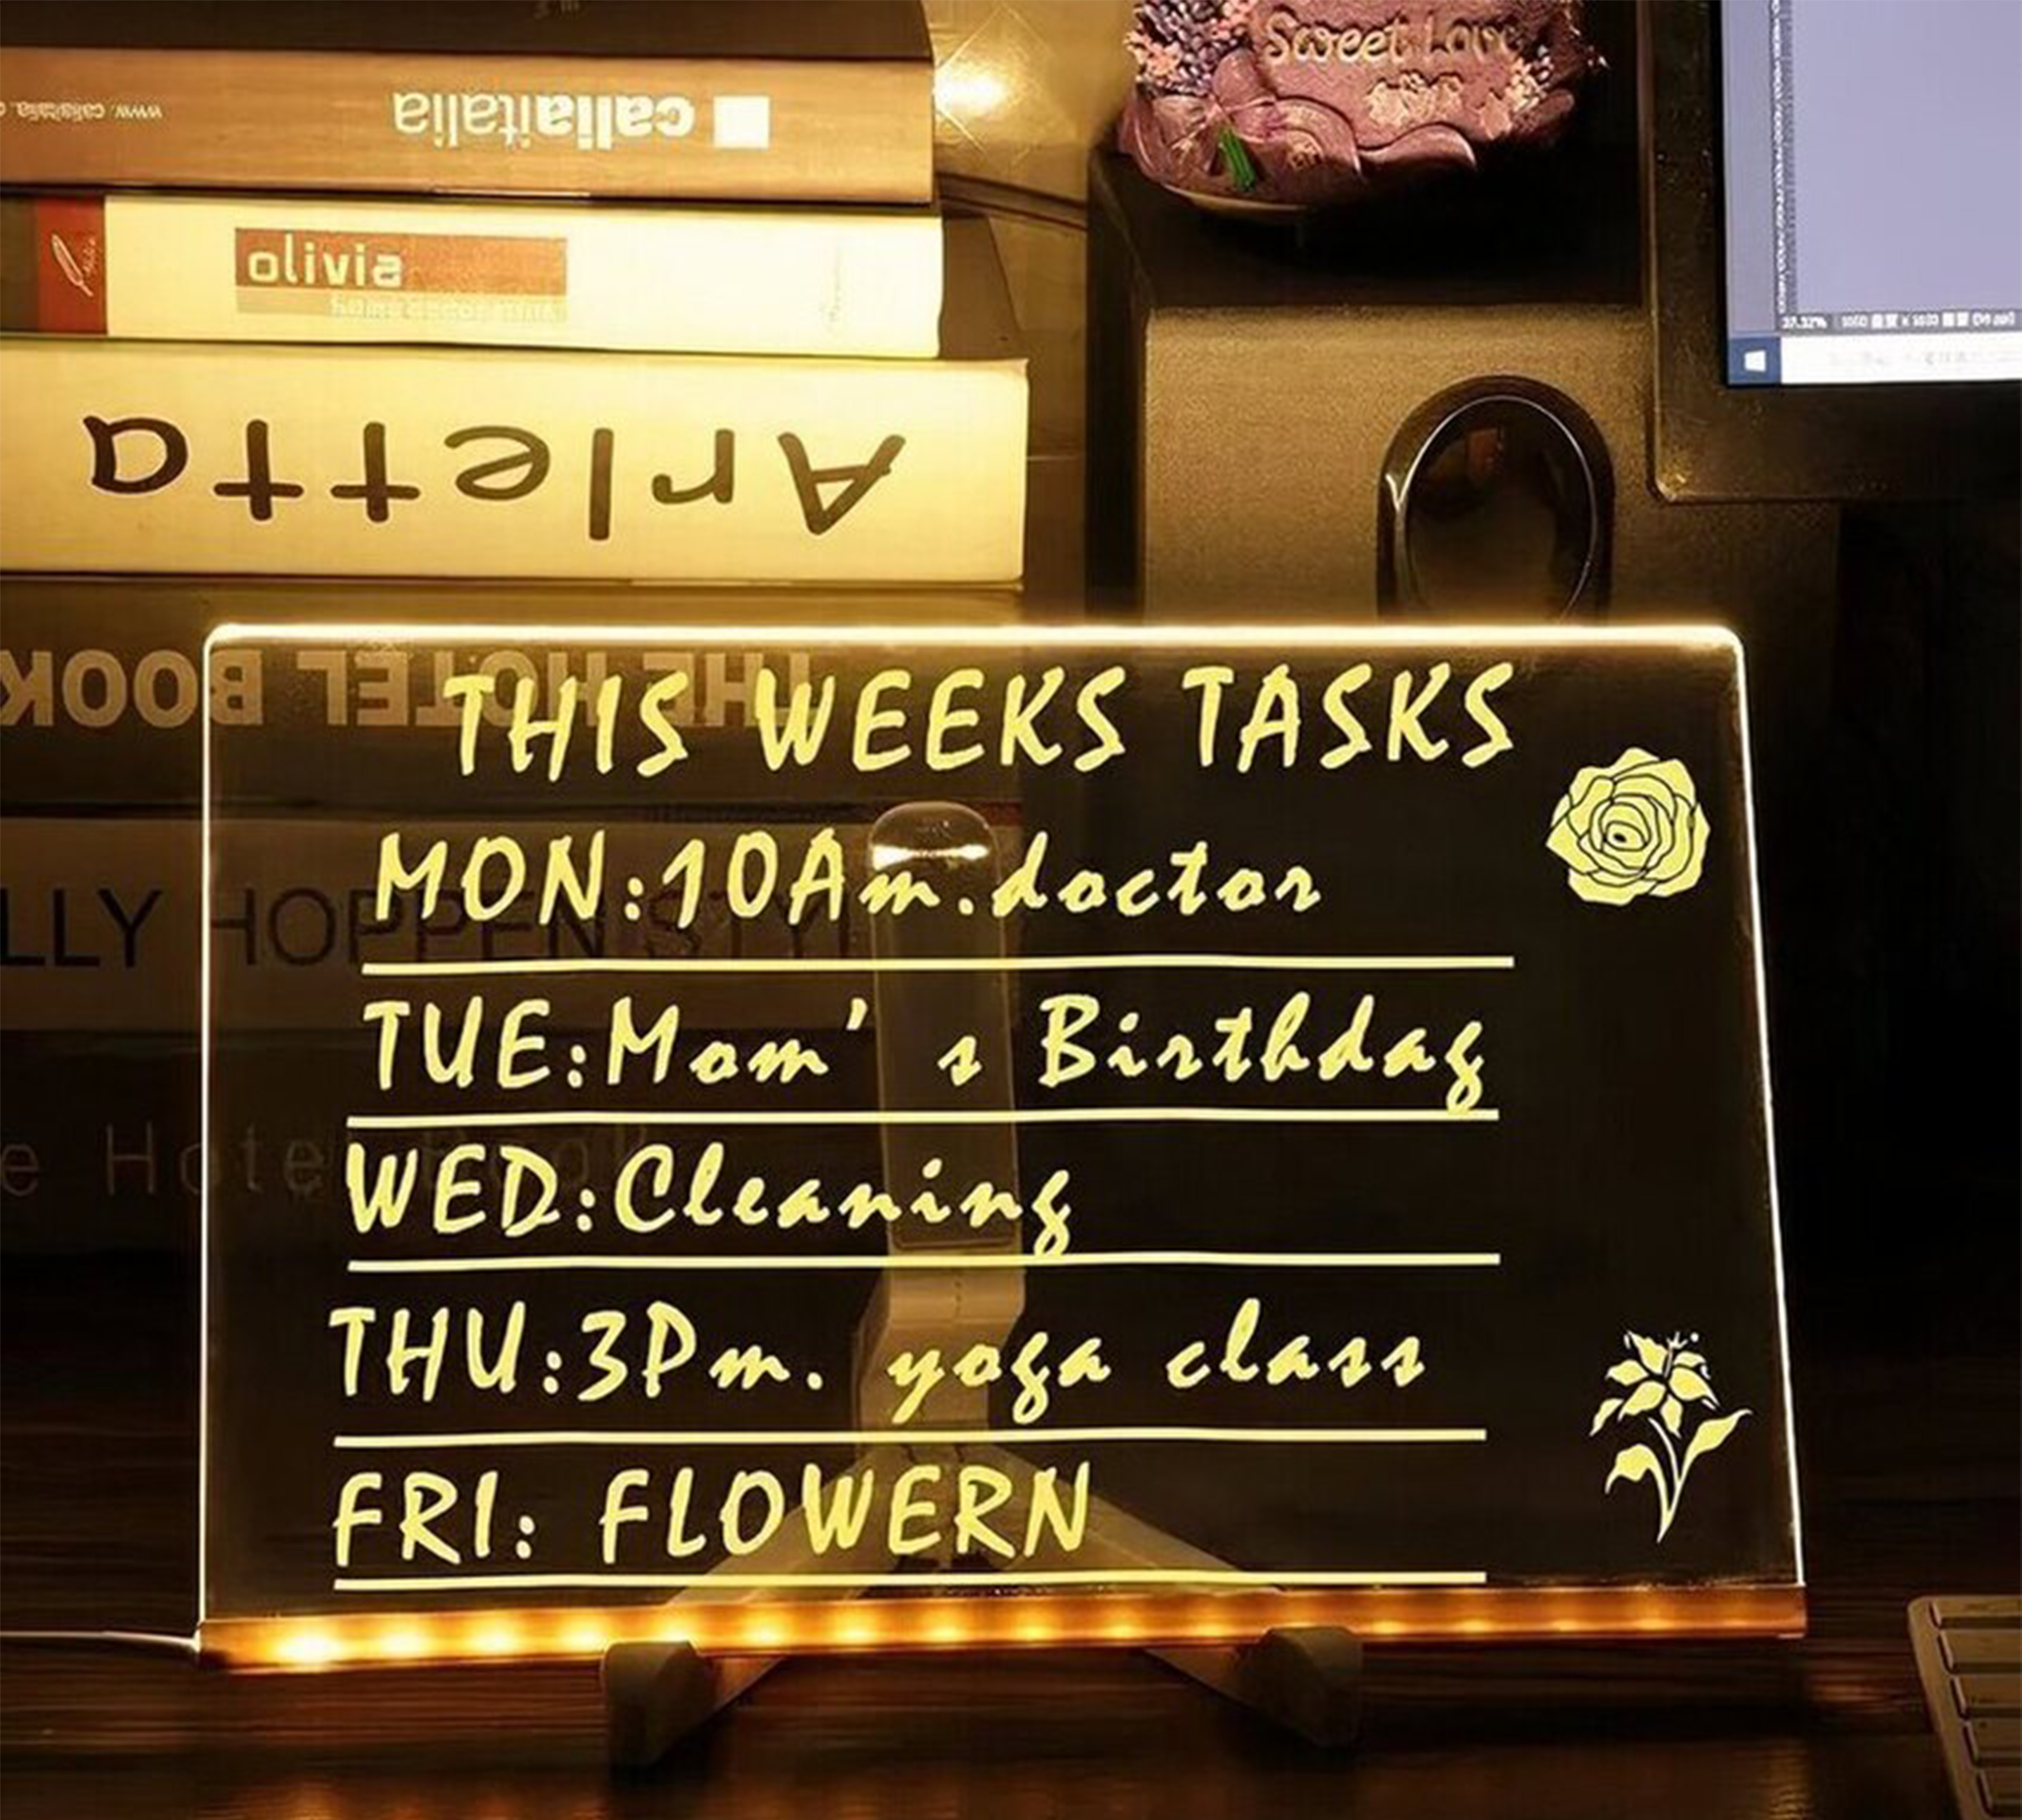 Sweet Love
www.caliaitalia.
caliaitalia
olivia
Arletta
THE HOTEL BOOK
THIS WEEKS TASKS
MON:10Am.doctor
LLY HOPPEN STYL
TUE:Mom's Birthday
e Hotel Book
WED:Cleaning
THU:3Pm. yoga class
FRI: FLOWERN